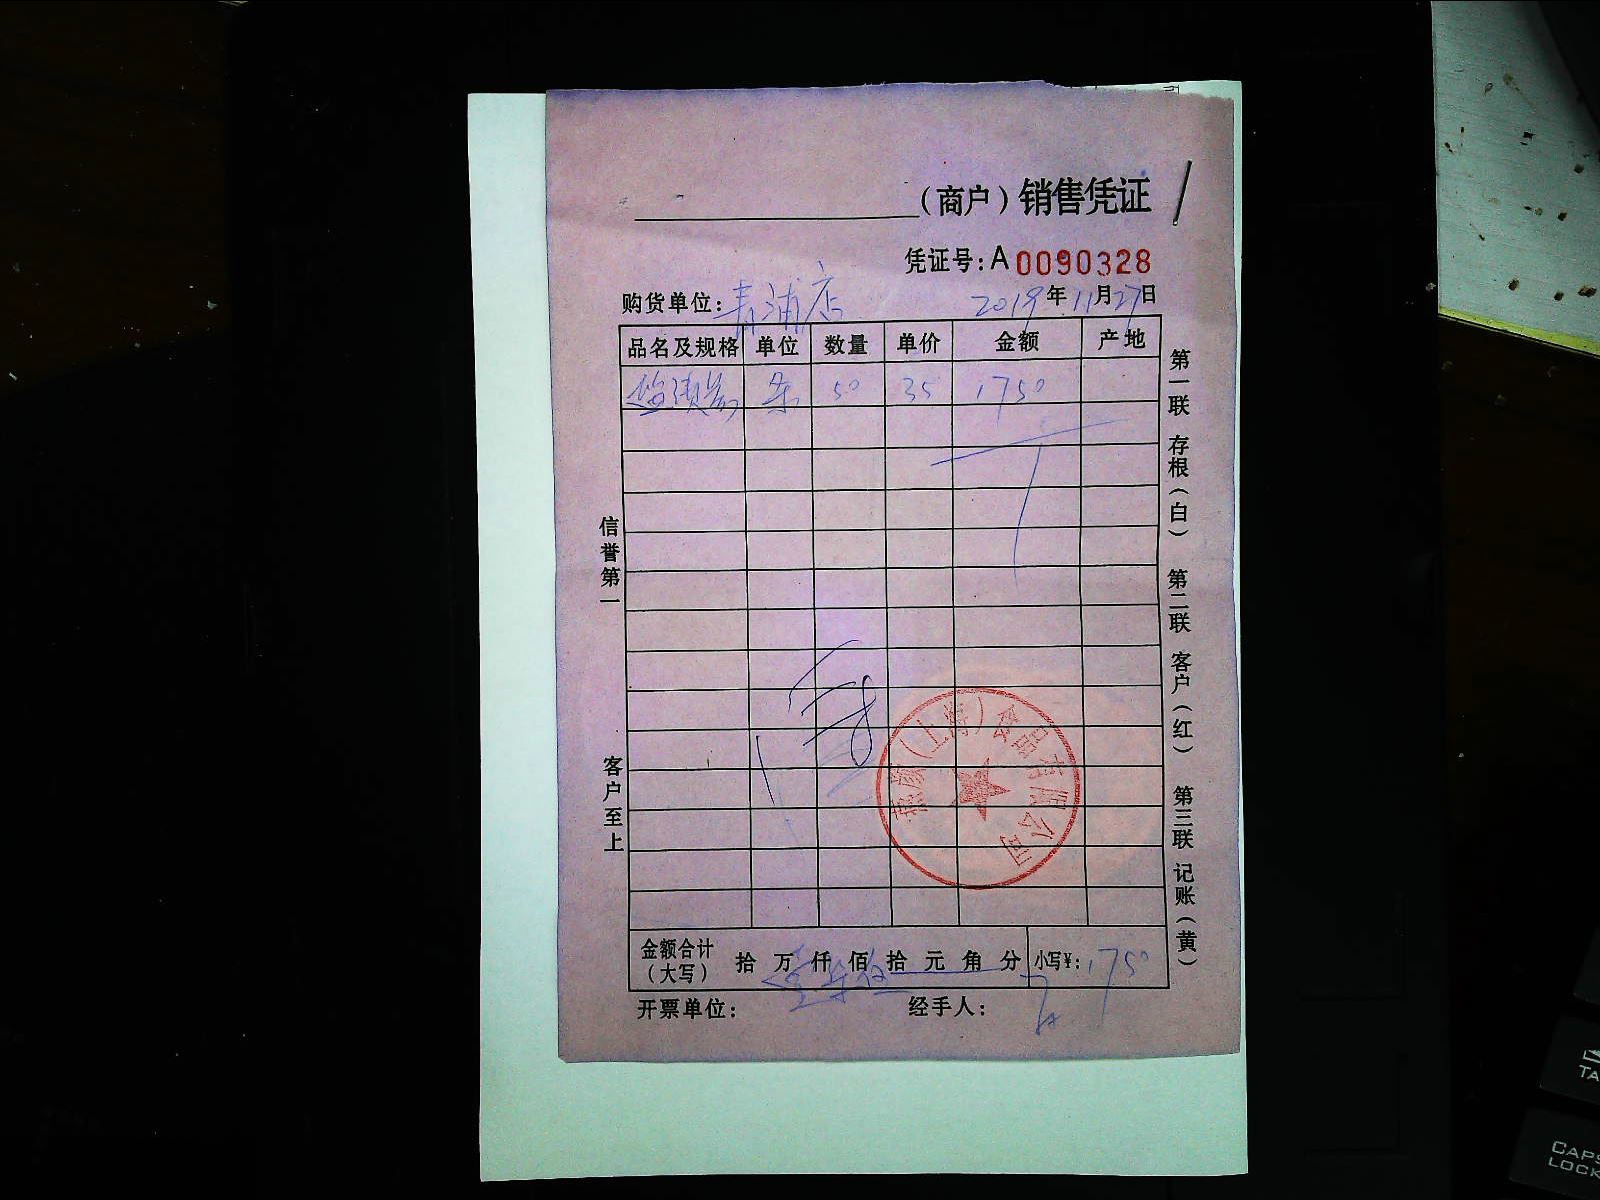 (商户)销售凭证
凭证号:A 0090328
购货单位:青浦店 2019年11月27日
品名及规格 单位 数量 单价 金额 产地
条 50 35 1750
信誉第一
客户至上
第一联 存根(白) 第二联 客户(红) 第三联 记账(黄)
(上海) 食品有限公司
金额合计(大写) 拾 万 仟 佰 拾 元 角 分 小写¥:1750
开票单位: 经手人:
TA
CAPS
LOCK